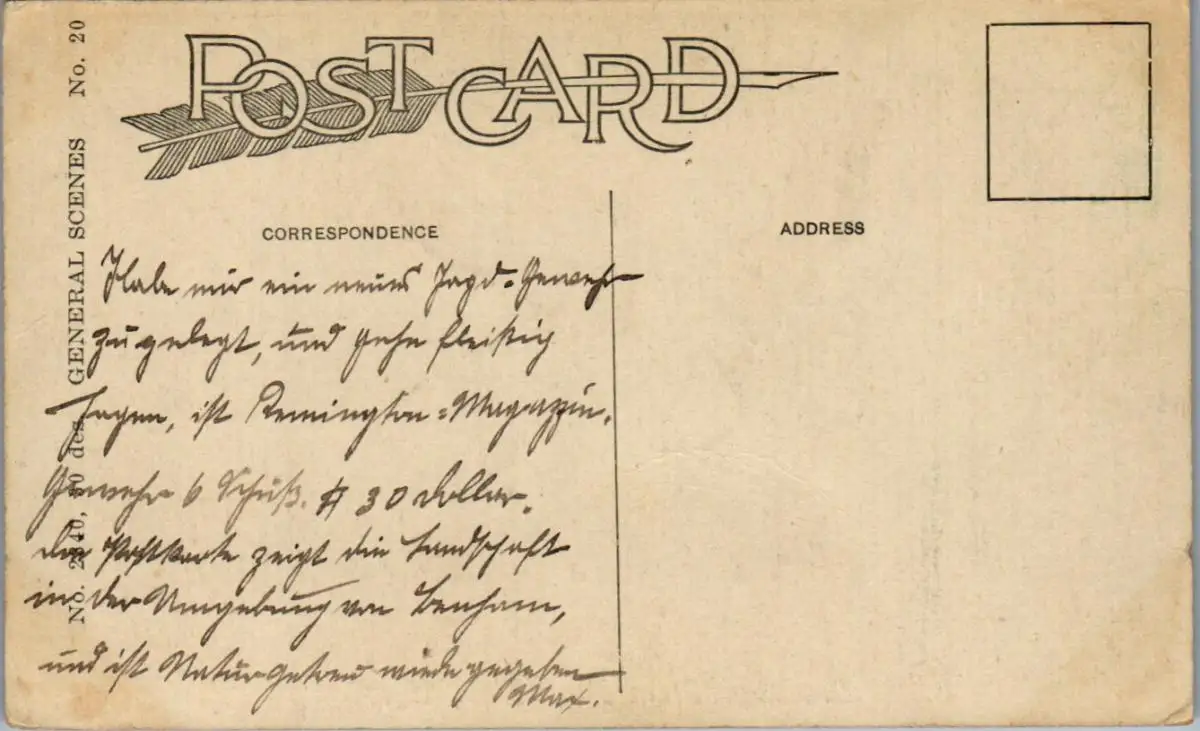 POST CARD
CORRESPONDENCE
ADDRESS
No. 2940, 20 des. GENERAL SCENES No. 20
Habe mir ein neues Jagd-Gewehr
zugelegt, und gehe fleißig
jagen, ist Remington-Magazin-
Gewehr 6 Schuß. $ 30 Dollar.
die Postkarte zeigt die Landschaft
in der Umgebung von Benham,
und ist Naturgetreu wiedergegeben
Max.